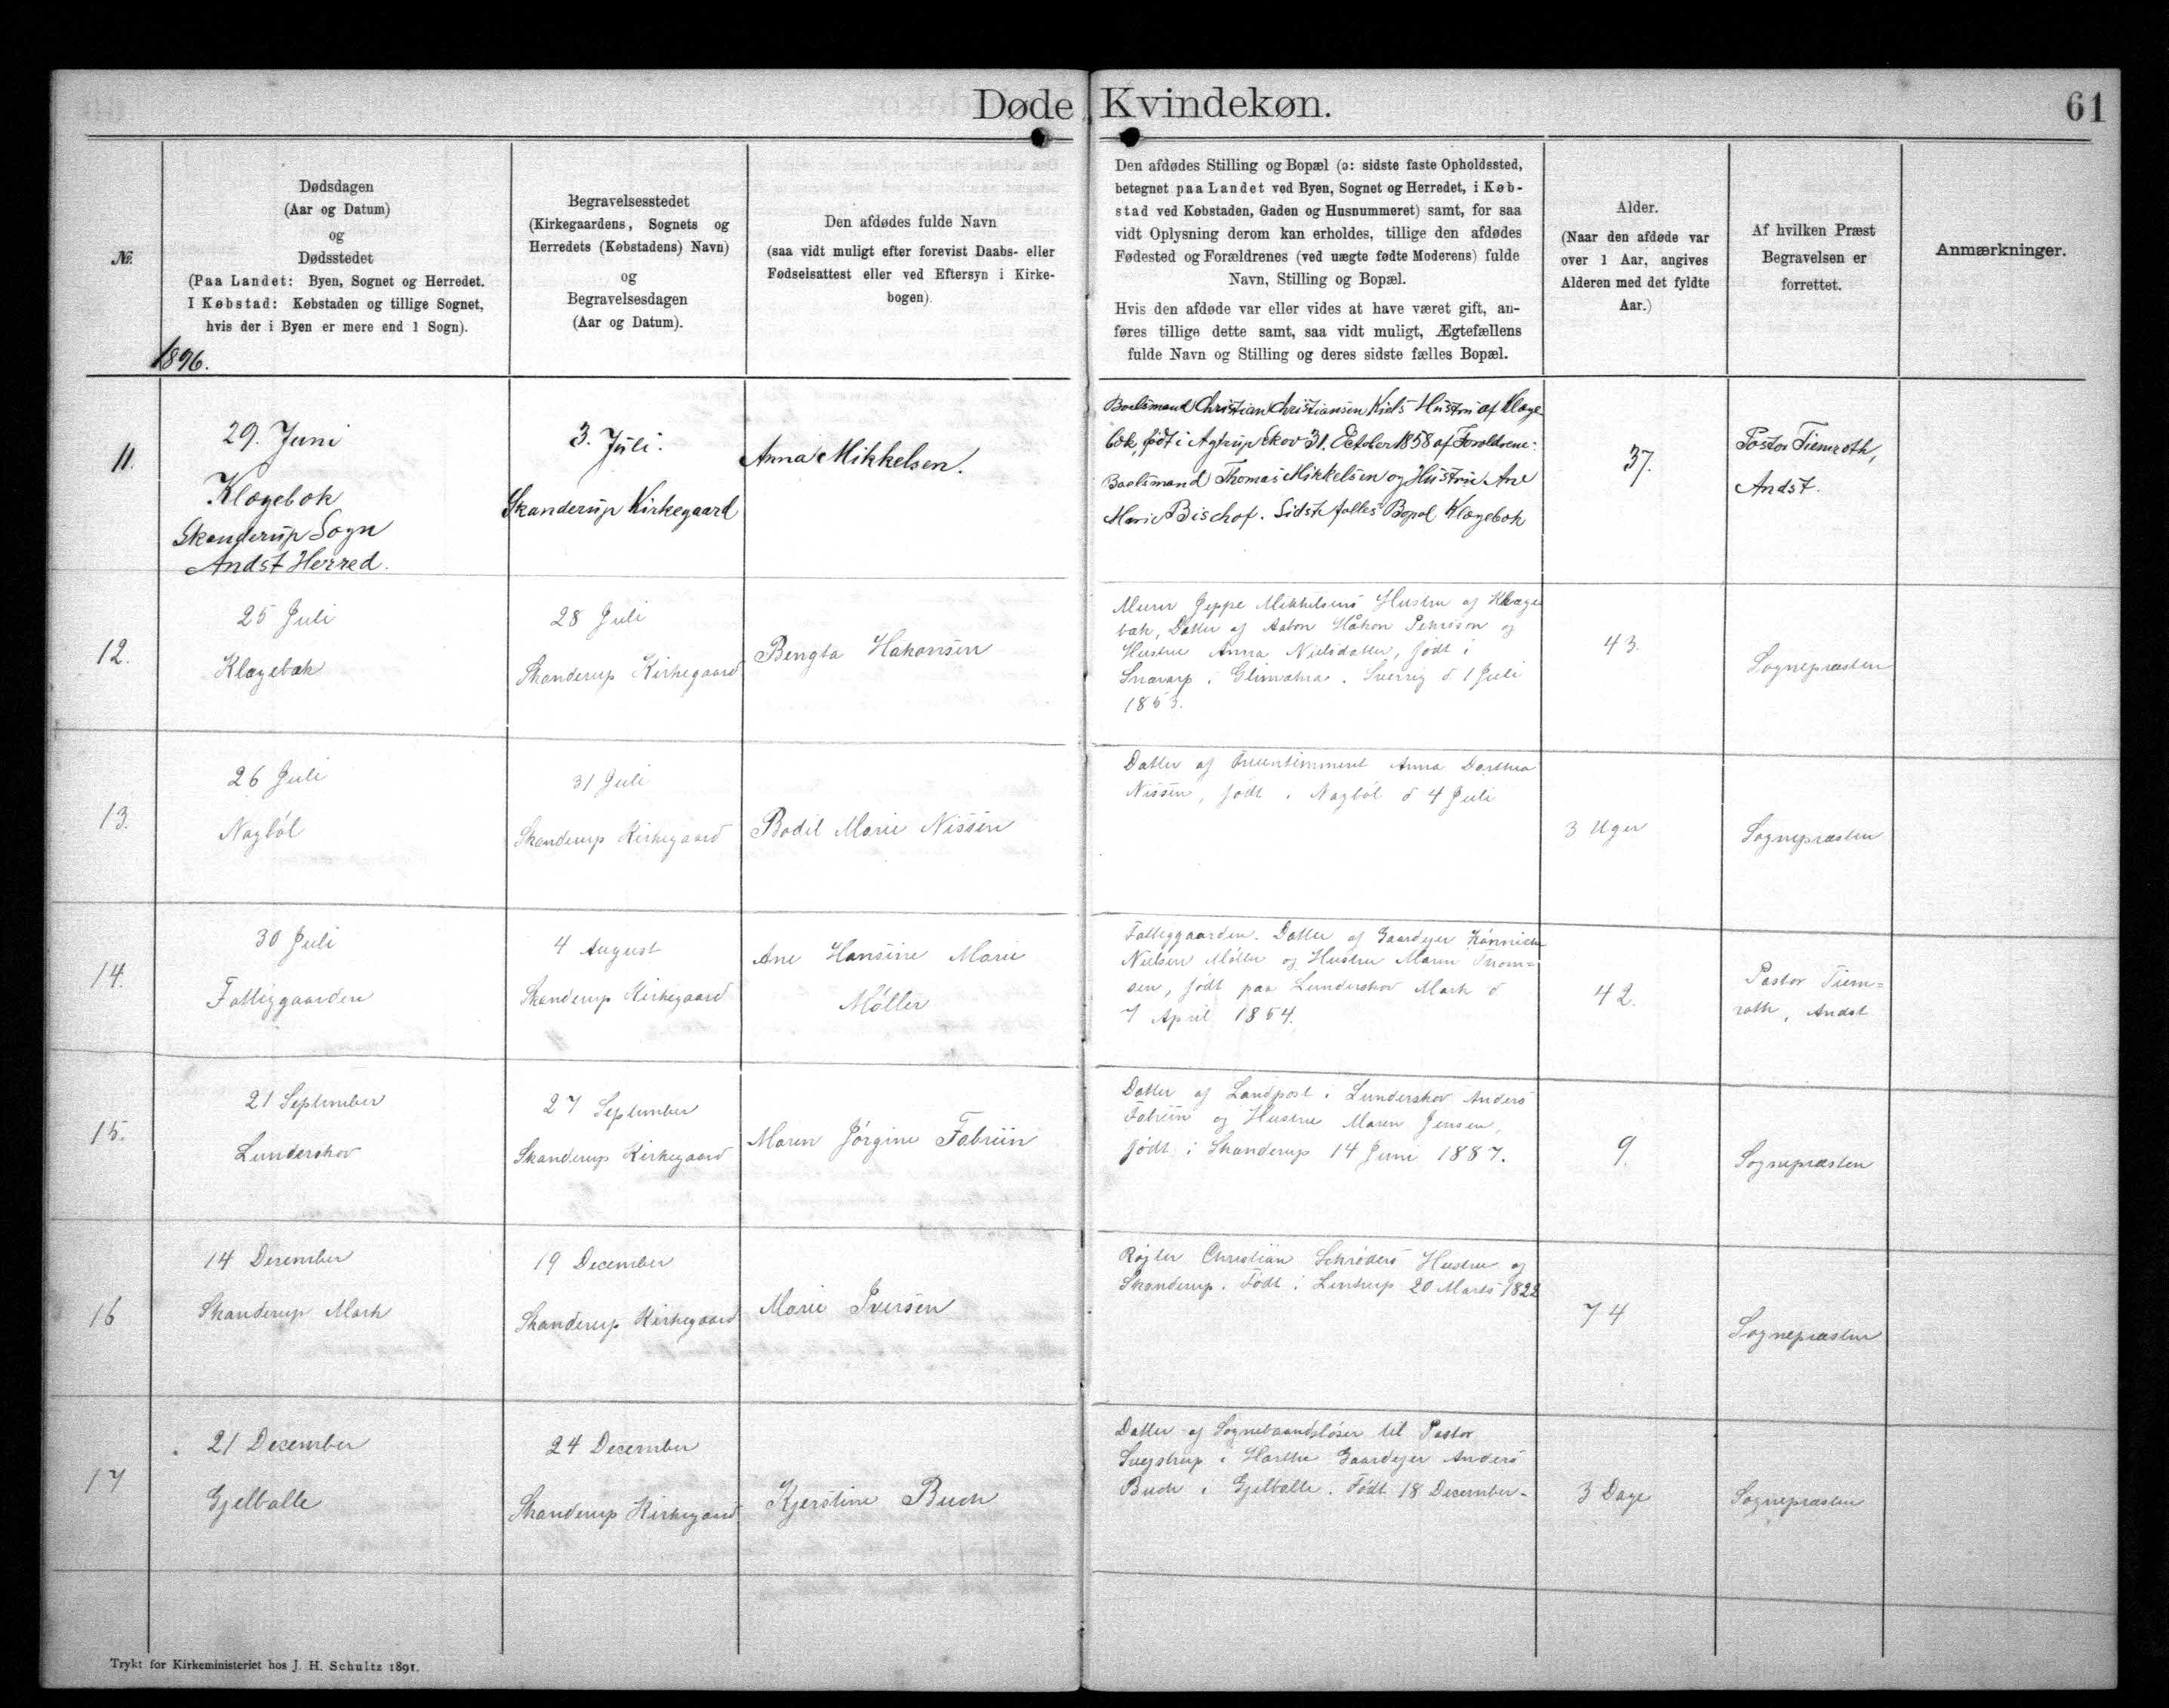 Døde Kvindekøn.
61
№
Dødsdagen
(Aar og Datum)
og
Dødsstedet
(Paa Landet: Byen, Sognet og Herredet.
I Købstad: Købstaden og tillige Sognet,
hvis der i Byen er mere end 1 Sogn).
Begravelsesstedet
(Kirkegaardens, Sognets og
Herredets (Købstadens) Navn)
og
Begravelsesdagen
(Aar og Datum).
Den afdødes fulde Navn
(saa vidt muligt efter forevist Daabs- eller
Fødselsattest eller ved Eftersyn i Kirke-
bogen).
Den afdødes Stilling og Bopæl (ɔ: sidste faste Opholdssted,
betegnet paa Landet ved Byen, Sognet og Herredet, i Køb-
stad ved Købstaden, Gaden og Husnummeret) samt, for saa
vidt Oplysning derom kan erholdes, tillige den afdødes
Fødested og Forældrenes (ved uægte fødte Moderens) fulde
Navn, Stilling og Bopæl.
Hvis den afdøde var eller vides at have været gift, an-
føres tillige dette samt, saa vidt muligt, Ægtefællens
fulde Navn og Stilling og deres sidste fælles Bopæl.
Alder.
(Naar den afdøde var
over 1 Aar, angives
Alderen med det fyldte
Aar.)
Af hvilken Præst
Begravelsen er
forrettet.
Anmærkninger.
1896.
11.
29. Juni
Klægebæk
Skanderup Sogn
Andst Herred.
3. Juli.
Skanderup Kirkegaard
Anna Mikkelsen.
Boelsmand Christian Christiansen Kiels Hustru af Klæge
bæk, født i Agtrup Skov 31. October 1858 af Forældrene:
Boelsmand Thomas Mikkelsen og Hustru Ane
Marie Bischof. Sidste fælles Bopæl Klægebæk
37.
Pastor Tiemroth,
Andst.
12.
25 Juli
Klægebæk
28 Juli
Skanderup Kirkegaard
Bengta Hakansen
Murer Jeppe Mikkelsens Hustru af Klæge
bæk, Datter af Håkon Pehrsson og
Hustru Anna Nielsdatter, født i
i Glimakra. Sverrig d 1 Juli
1853.
43.
Sognepræsten
13.
26 Juli
Nagbøl
31 Juli
Skanderup Kirkegaard
Bodil Marie Nissen
Datter af Fruentimmeret Anna Dorthea
Nissen, født i Nagbøl d 4 Juli
3 Uger
Sognepræsten
14.
30 Juli
Fattiggaarden
4 August
Skanderup Kirkegaard
Ane Hansine Marie
Møller
Fattiggaarden. Datter af Gaardejer
Nielsen Møller og Hustru Maren Thom=
sen, født paa Lunderskov Mark d
7 April 1854.
42.
Pastor Tiem=
roth, Andst
15.
21 September
Lunderskov
27 September
Skanderup Kirkegaard
Maren Jørgine Fabriin
Datter af Landpost i Lunderskov Anders
Fabriin og Hustru Maren Jensen,
født i Skanderup 14 Juni 1887.
9.
Sognepræsten
16
14 December
Skanderup Mark
19 December
Skanderup Kirkegaard
Marie Iversen
Røgter Christian Schrøders Hustru af
Skanderup. Født i Lintrup 20 Marts 1822
74
Sognepræsten
17
21 December
Gjelballe
24 December
Skanderup Kirkegaard
Kjerstine Buch
Datter af Sognebaandsløser til Pastor
Svejstrup i Harthe Gaardejer Anders
Buch i Gjelballe. Født 18 December-
3 Dage
Sognepræsten
Trykt for Kirkeministeriet hos J. H. Schultz 1891.